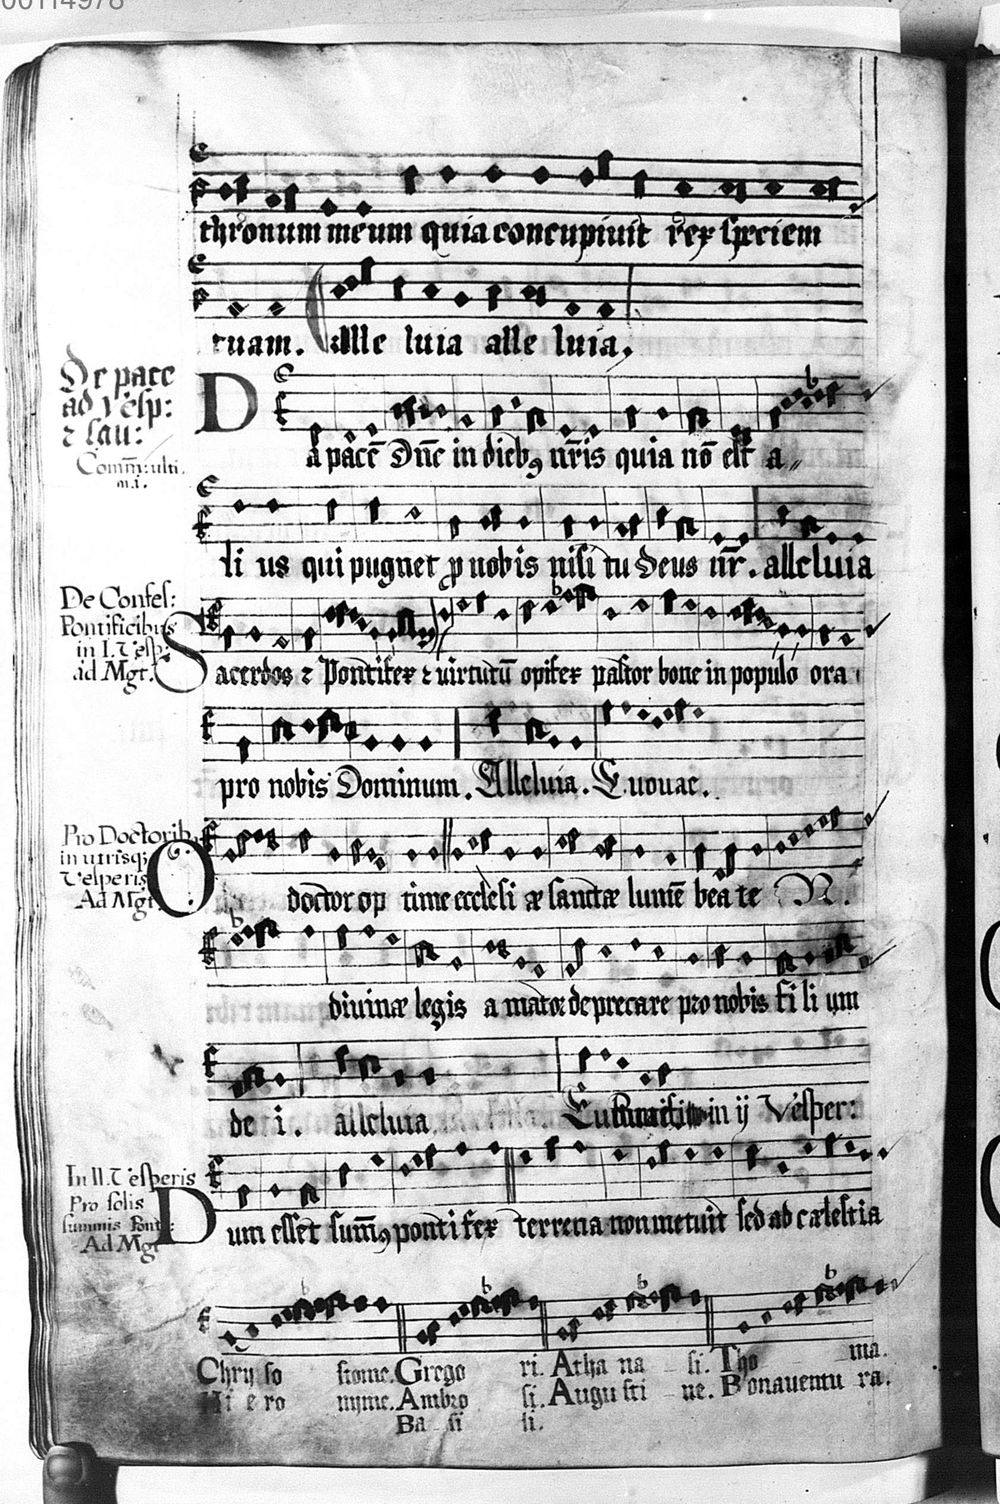 00114978
thronum meum quia concupiuit rex speciem
tuam. Alle luia alle luia.
De pace
ad Vesp:
⁊ lau:
Comm̄: ulti
ma.
Da pacē Dn̄e in dieb9 nr̄is quia nō est a„
li us qui pugnet ꝓ nobis nisi tu Deus nr̄. alleluia
De Confes:
Pontificibus
in I. Vesp:
ad Mgt.
Sacerdos ⁊ Pontifex ⁊ uirtutū opifex pastor bone in populo ora
pro nobis Dominum. Alleluia. Euouae.
Pro Doctorib.
in utrisq3
Vesperis
Ad Mgt.
O doctor op time ecclesi æ sanctæ lumē bea te N.
diuinæ legis a mator deprecare pro nobis fi li um
de i. alleluia in ij Vesper:
In II. Vesperis
Pro solis
summis Pont:
Ad Mgt
Dum esset sum̄9 ponti fex terrena non metuit sed ad cælestia
Chry so stome. Grego ri. Atha na si. Tho ma.
Hi e ro nyme. Ambro si. Augu sti ne. Bonauentu ra.
Ba si li.